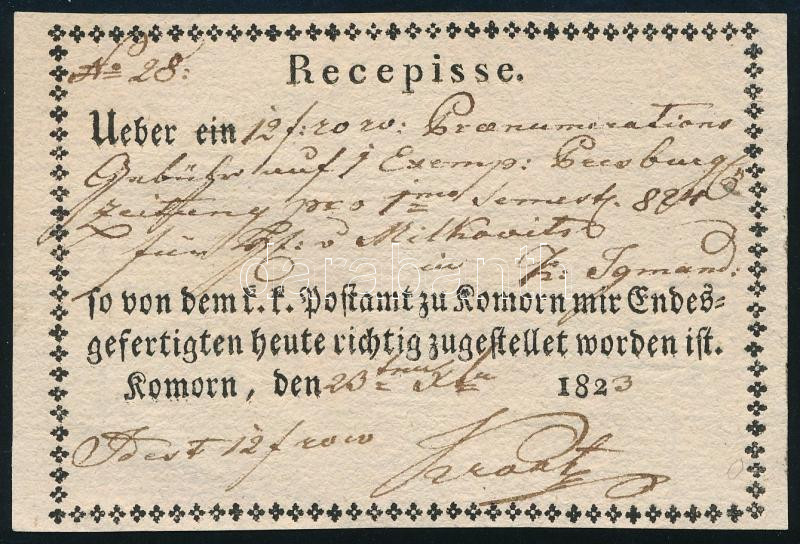 No 28:
Recepisse.
Ueber ein 12 f: Praenumerations
Gebühr auf 1 Exemp: Presburg
zeitung pro 1mo Semest. 824
für H: v Milkovits
in Igmand:
so von dem k. k. Postamt zu Komorn mir Endes-
gefertigten heute richtig zugestellet worden ist.
Komorn, den 23 1823
Idest 12 f
darabanth